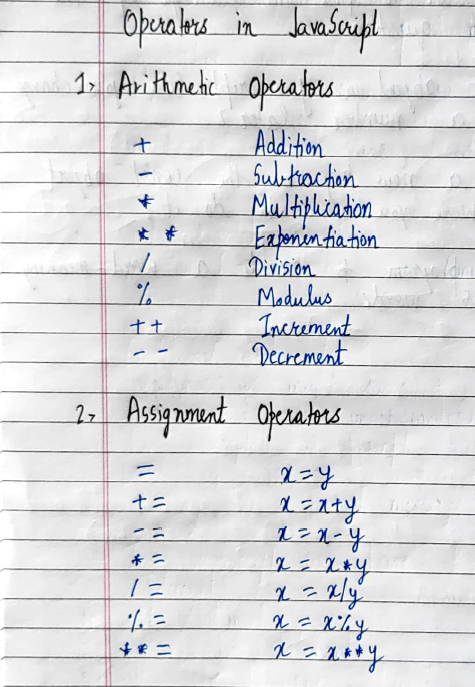 Operators in JavaScript
1> Arithmetic Operators
+ Addition
- Subtraction
* Multiplication
* * Exponentiation
/ Division
% Modulus
+ + Increment
- - Decrement
2> Assignment Operators
= x = y
+ = x = x+y
- = x = x-y
* = x = x*y
/ = x = x/y
% = x = x%y
* * = x = x**y